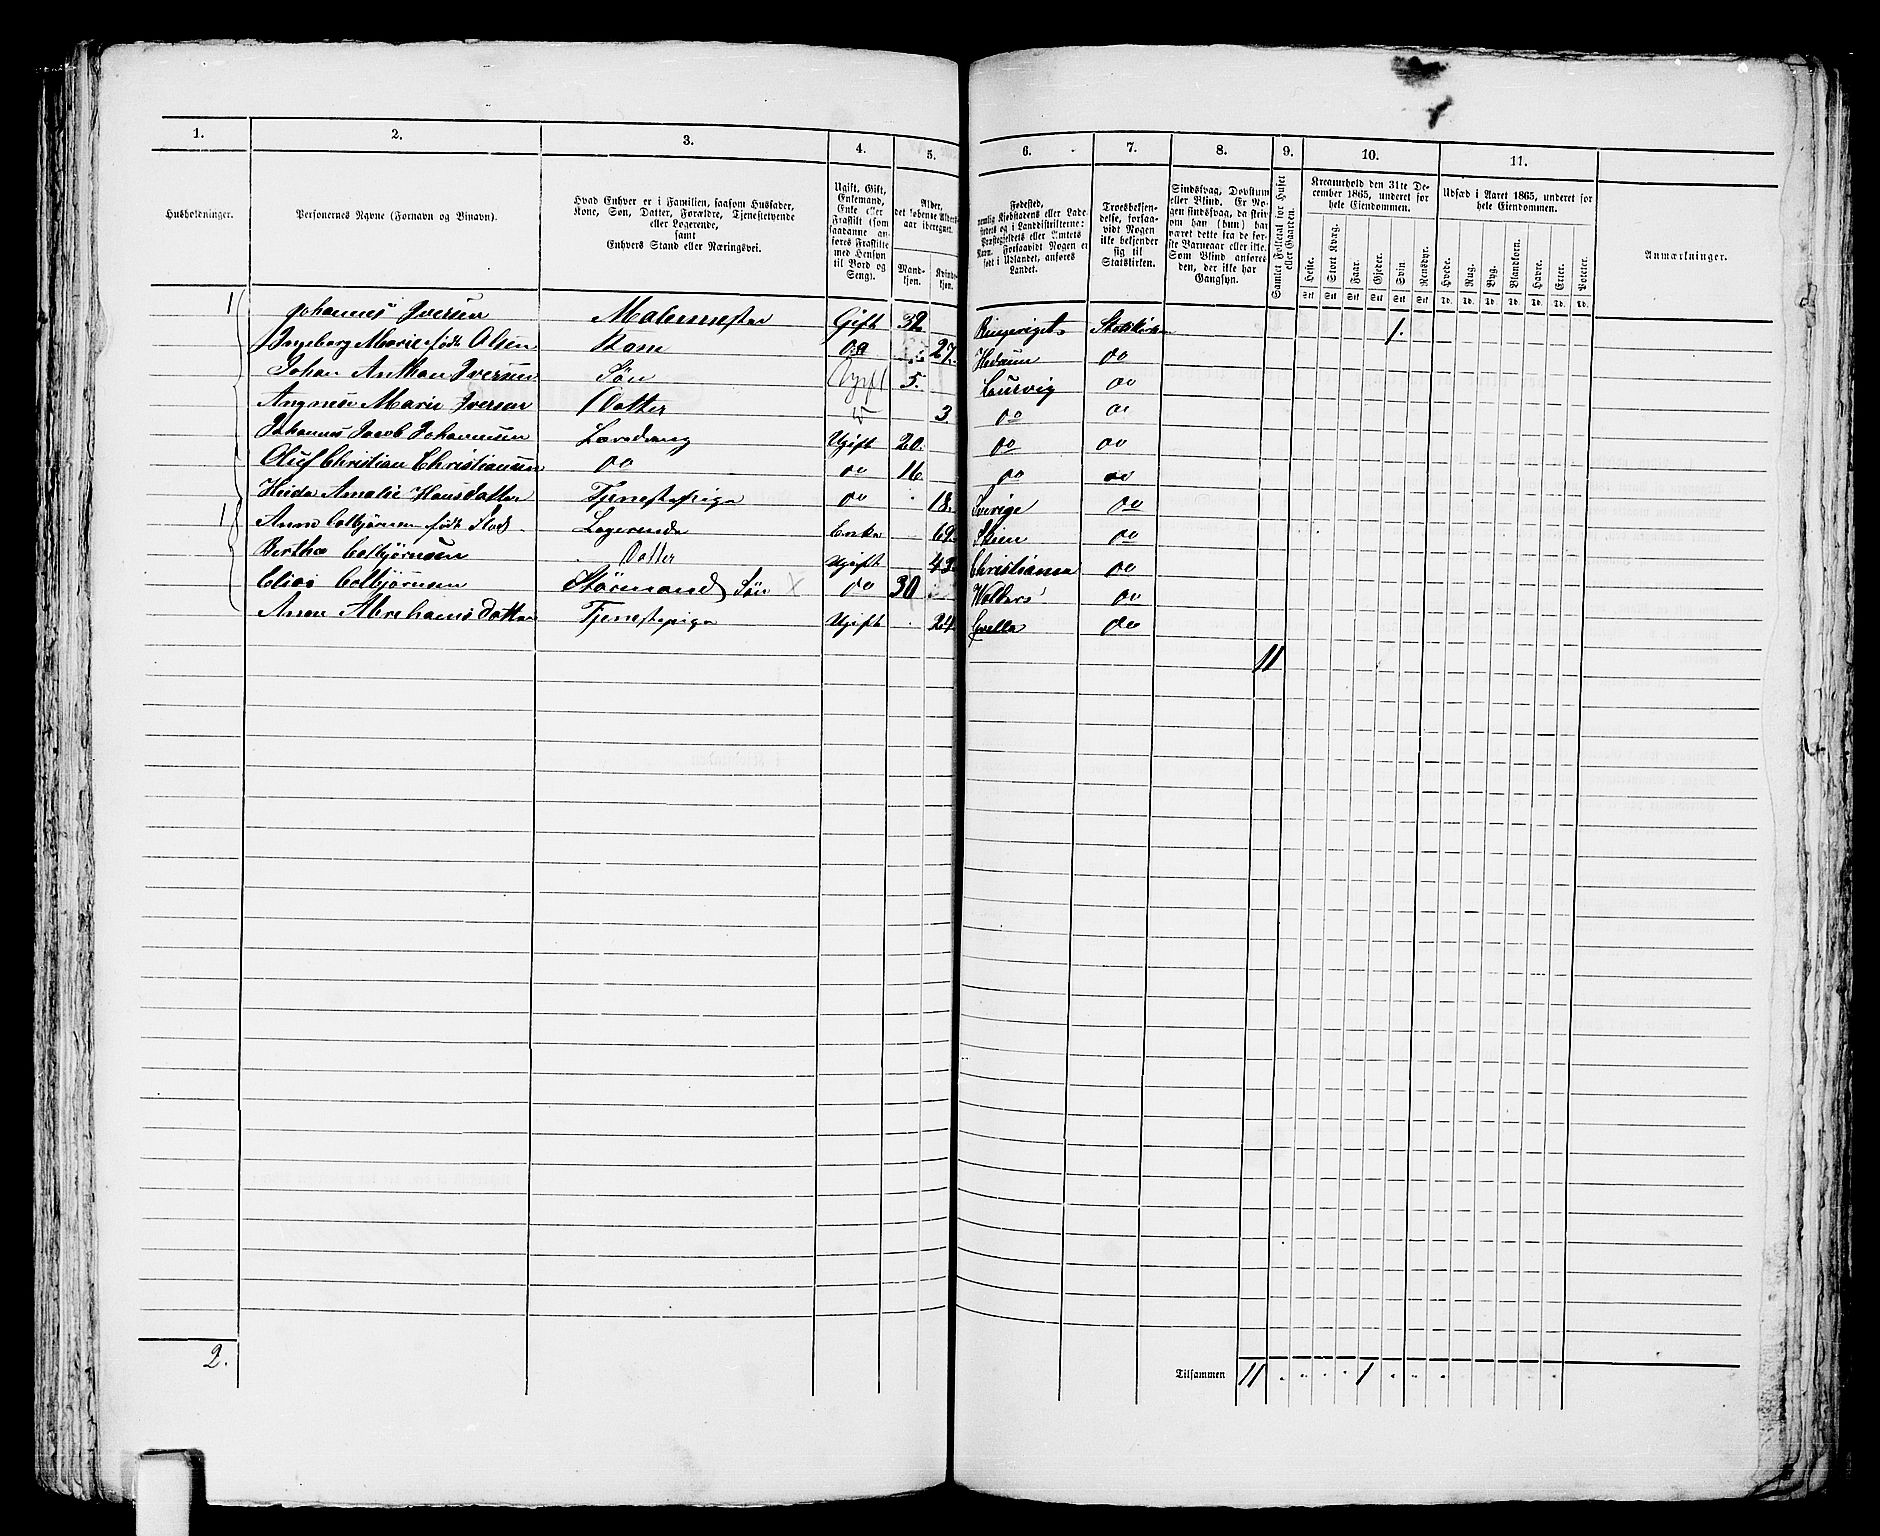 1. 2. 3. 4. 5. 6. 7. 8. 9. 10. 11.
Husholdninger.
Personernes Navne (Fornavn og Binavn).
Hvad Enhver er i Familien, saasom Husfader, Kone, Søn, Datter, Forældre, Tjenestetyende eller Logerende, samt Enhvers Stand eller Næringsvei.
Ugift, Gift, Enkemand, Enke eller Fraskilt (som saadanne anføres Fraskilte med Hensyn til Bord og Seng).
Alder, det løbende Alders-aar iberegnet.
Mand-kjøn. Kvinde-kjøn.
Fødested, nemlig Kjøbstadens eller Ladestedets og i Landdistrikterne: Præstegjeldets eller Amtets Navn. Forsaavidt Nogen er født i Udlandet, anføres Landet.
Troesbekjendelse, forsaavidt Nogen ikke bekjender sig til Statskirken.
Sindssvag, Døvstum eller Blind. Er Nogen sindssvag, da skrives han (hun) har været dette fra de første Barneaar eller ikke. Som Blind anføres den, der ikke har Gangsyn.
Samlet Folketal for Huset eller Gaarden.
Kreaturhold den 31te December 1865, underet for hele Eiendommen.
Heste. Stort Kvæg. Faar. Gjeder. Svin. Rensdyr.
Udsæd i Aaret 1865, underet for hele Eiendommen.
Hvede. Rug. Byg. Blandkorn. Havre. Erter. Poteter.
Anmærkninger.
Stk Stk Stk Stk Stk Stk Td. Td. Td. Td. Td. Td. Td.
1 Johannes Iversen Malermester Gift 32 Ringeriget Statskirken 1.
Ingeborg Marie født Olsen Kone do 27. Hedrum do
Johan Anthon Iversen Søn Ugift 5. Laurvig do
Angnese Marie Iversen Datter 3 do do
Johannes Jacob Johannesen Læredreng Ugift 20. do do
Oluf Christian Christiansen do do 16 do do
Amalie Hansdatter Tjenestepige do 18. Sverige do
1 Anne Colbjørnsen født Logerende Enke 69. Skien do
Berthe Colbjørnsen Datter Ugift 43. Christiania do
Colbjørnsen Styrmand, Søn x do 30 do
Anne Abrahamsdatter Tjenestepige Ugift 24. do
11
2. Tilsammen 11 1